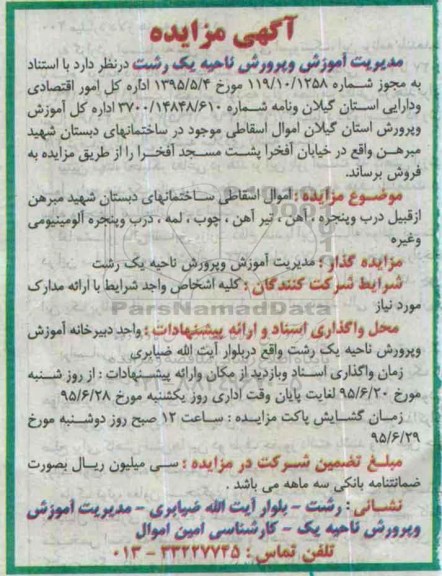 آگهی مزایده
مدیریت آموزش وپرورش ناحیه یک رشت درنظر دارد با استناد
به مجوز شماره ۱۱۹/۱۰/۱۲۵۸ مورخ ۱۳۹۵/۵/۴ اداره کل امور اقتصادی
ودارایی استان گیلان ونامه شماره ۳۷۰۰/۱۴۸۴۸/۶۱۰ اداره کل آموزش
وپرورش استان گیلان اموال اسقاطی موجود در ساختمانهای دبستان شهید
مبرهن واقع در خیابان آفخرا پشت مسجد آفخرا را از طریق مزایده به
فروش برساند.
موضوع مزایده : اموال اسقاطی ساختمانهای دبستان شهید مبرهن
ازقبیل درب وپنجره ، آهن ، تیر آهن ، چوب ، لمه ، درب وپنجره آلومینیومی
وغیره
مزایده گذار : مدیریت آموزش وپرورش ناحیه یک رشت
شرایط شرکت کنندگان : کلیه اشخاص واجد شرایط با ارائه مدارک
مورد نیاز
ParsNamadData
محل واگذاری اسناد و ارائه پیشنهادات : واحد دبیرخانه آموزش
وپرورش ناحیه یک رشت واقع دربلوار آیت الله ضیابری
زمان واگذاری اسناد وبازدید از مکان وارائه پیشنهادات : از روز شنبه
مورخ ۹۵/۶/۲۰ لغایت پایان وقت اداری روز یکشنبه مورخ ۹۵/۶/۲۸
زمان گشایش پاکت مزایده : ساعت ۱۲ صبح روز دوشنبه مورخ
۹۵/۶/۲۹
مبلغ تضمین شرکت در مزایده : سی میلیون ریال بصورت
ضمانتنامه بانکی سه ماهه می باشد .
نشانی : رشت - بلوار آیت الله ضیابری - مدیریت آموزش
وپرورش ناحیه یک - کارشناسی امین اموال
تلفن تماس : ۳۳۲۲۷۷۴۵ - ۰۱۳